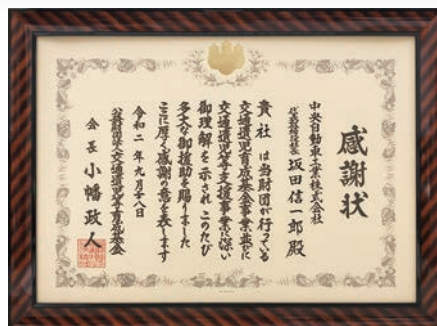 感謝状
中央自動車工業株式会社
代表取締役社長 坂田信一郎 殿
貴社は当財団が行っている
交通遺児育成基金事業並びに
交通遺児等支援事業に深い
御理解を示されこのたび
多大な御援助を賜りました
ここに厚く感謝の意を表します
令和二年九月十八日
公益財団法人交通遺児等育成基金
会長 小幡政人